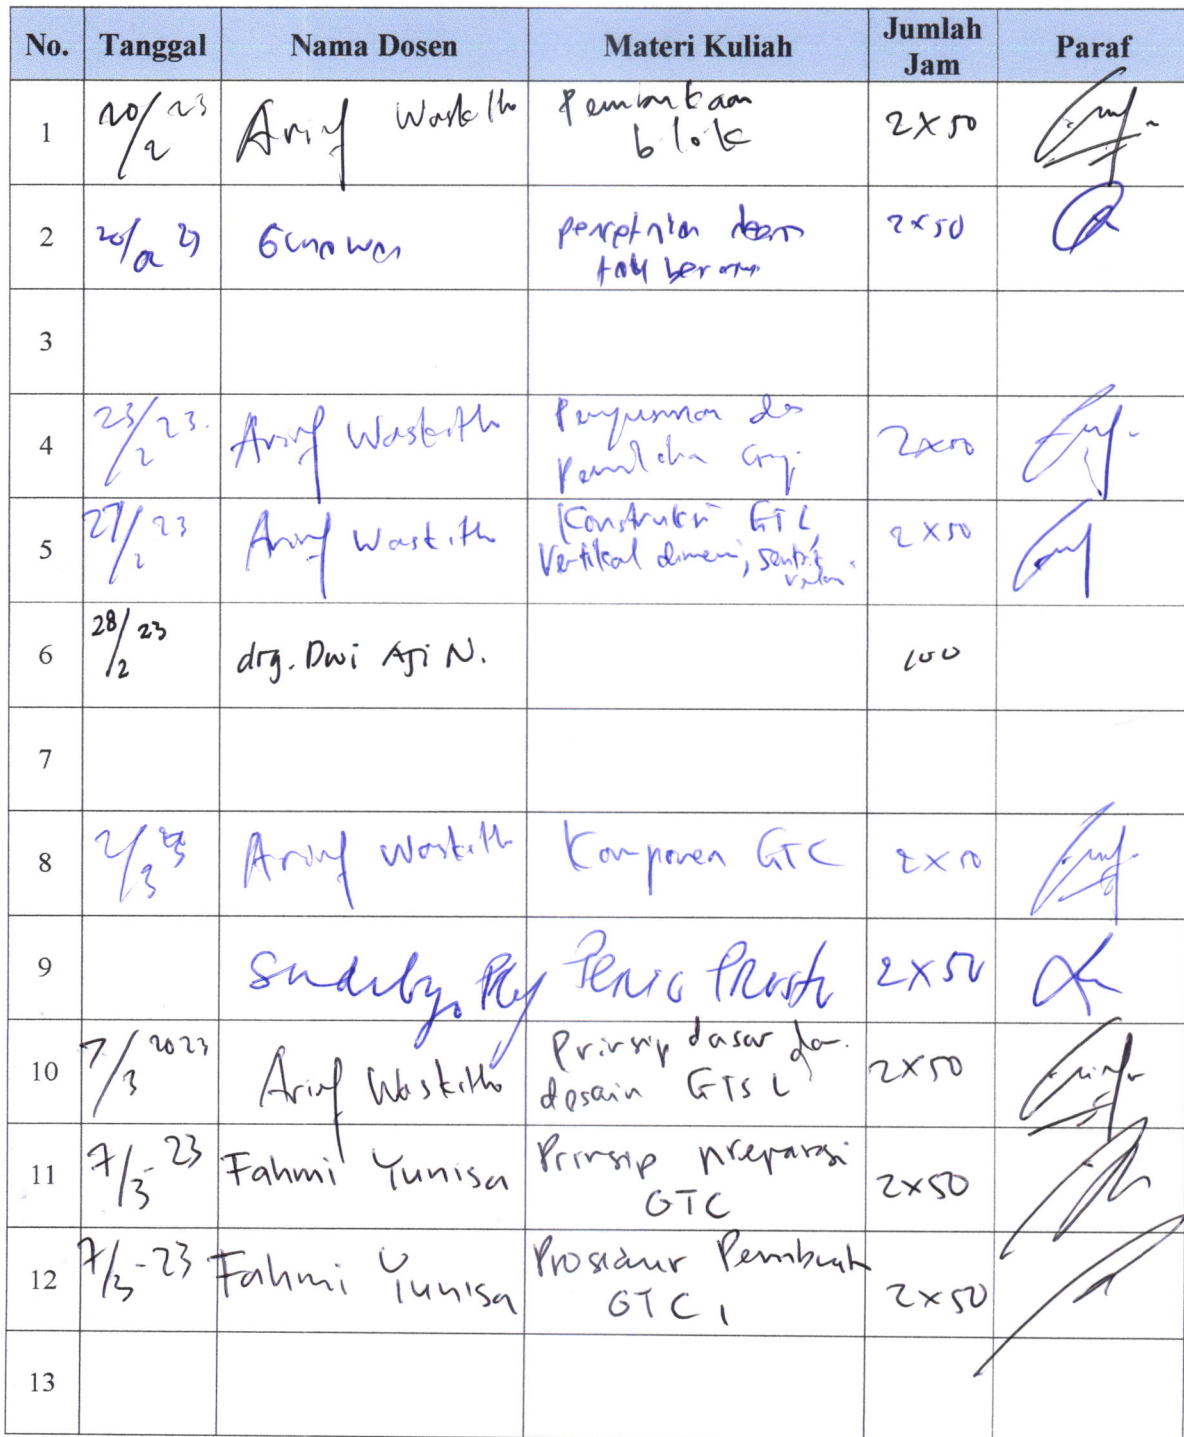 No. Tanggal Nama Dosen Materi Kuliah Jumlah Jam Paraf
1 20/2 23 Arief Waskitho Pembukaan blok 2x50
2 20/2 23 Gunawan 2x50
3
4 23/2 23. Arief Waskitho Penyusunan dan 2x50
5 27/2 23 Arief Waskitho Konstruksi GTL, Vertikal dimensi, sentrik 2x50
6 28/2 23 drg. Dwi Aji N. 100
7
8 2/3 23 Arief Waskitho Komponen GTC 2x50
9 2x50
10 7/3 2023 Arief Waskitho Prinsip dasar dan desain GTSL 2x50
11 7/3-23 Fahmi Yunisa Prinsip preparasi GTC 2x50
12 7/3-23 Fahmi Yunisa Prosedur Pembuat GTC 1 2x50
13